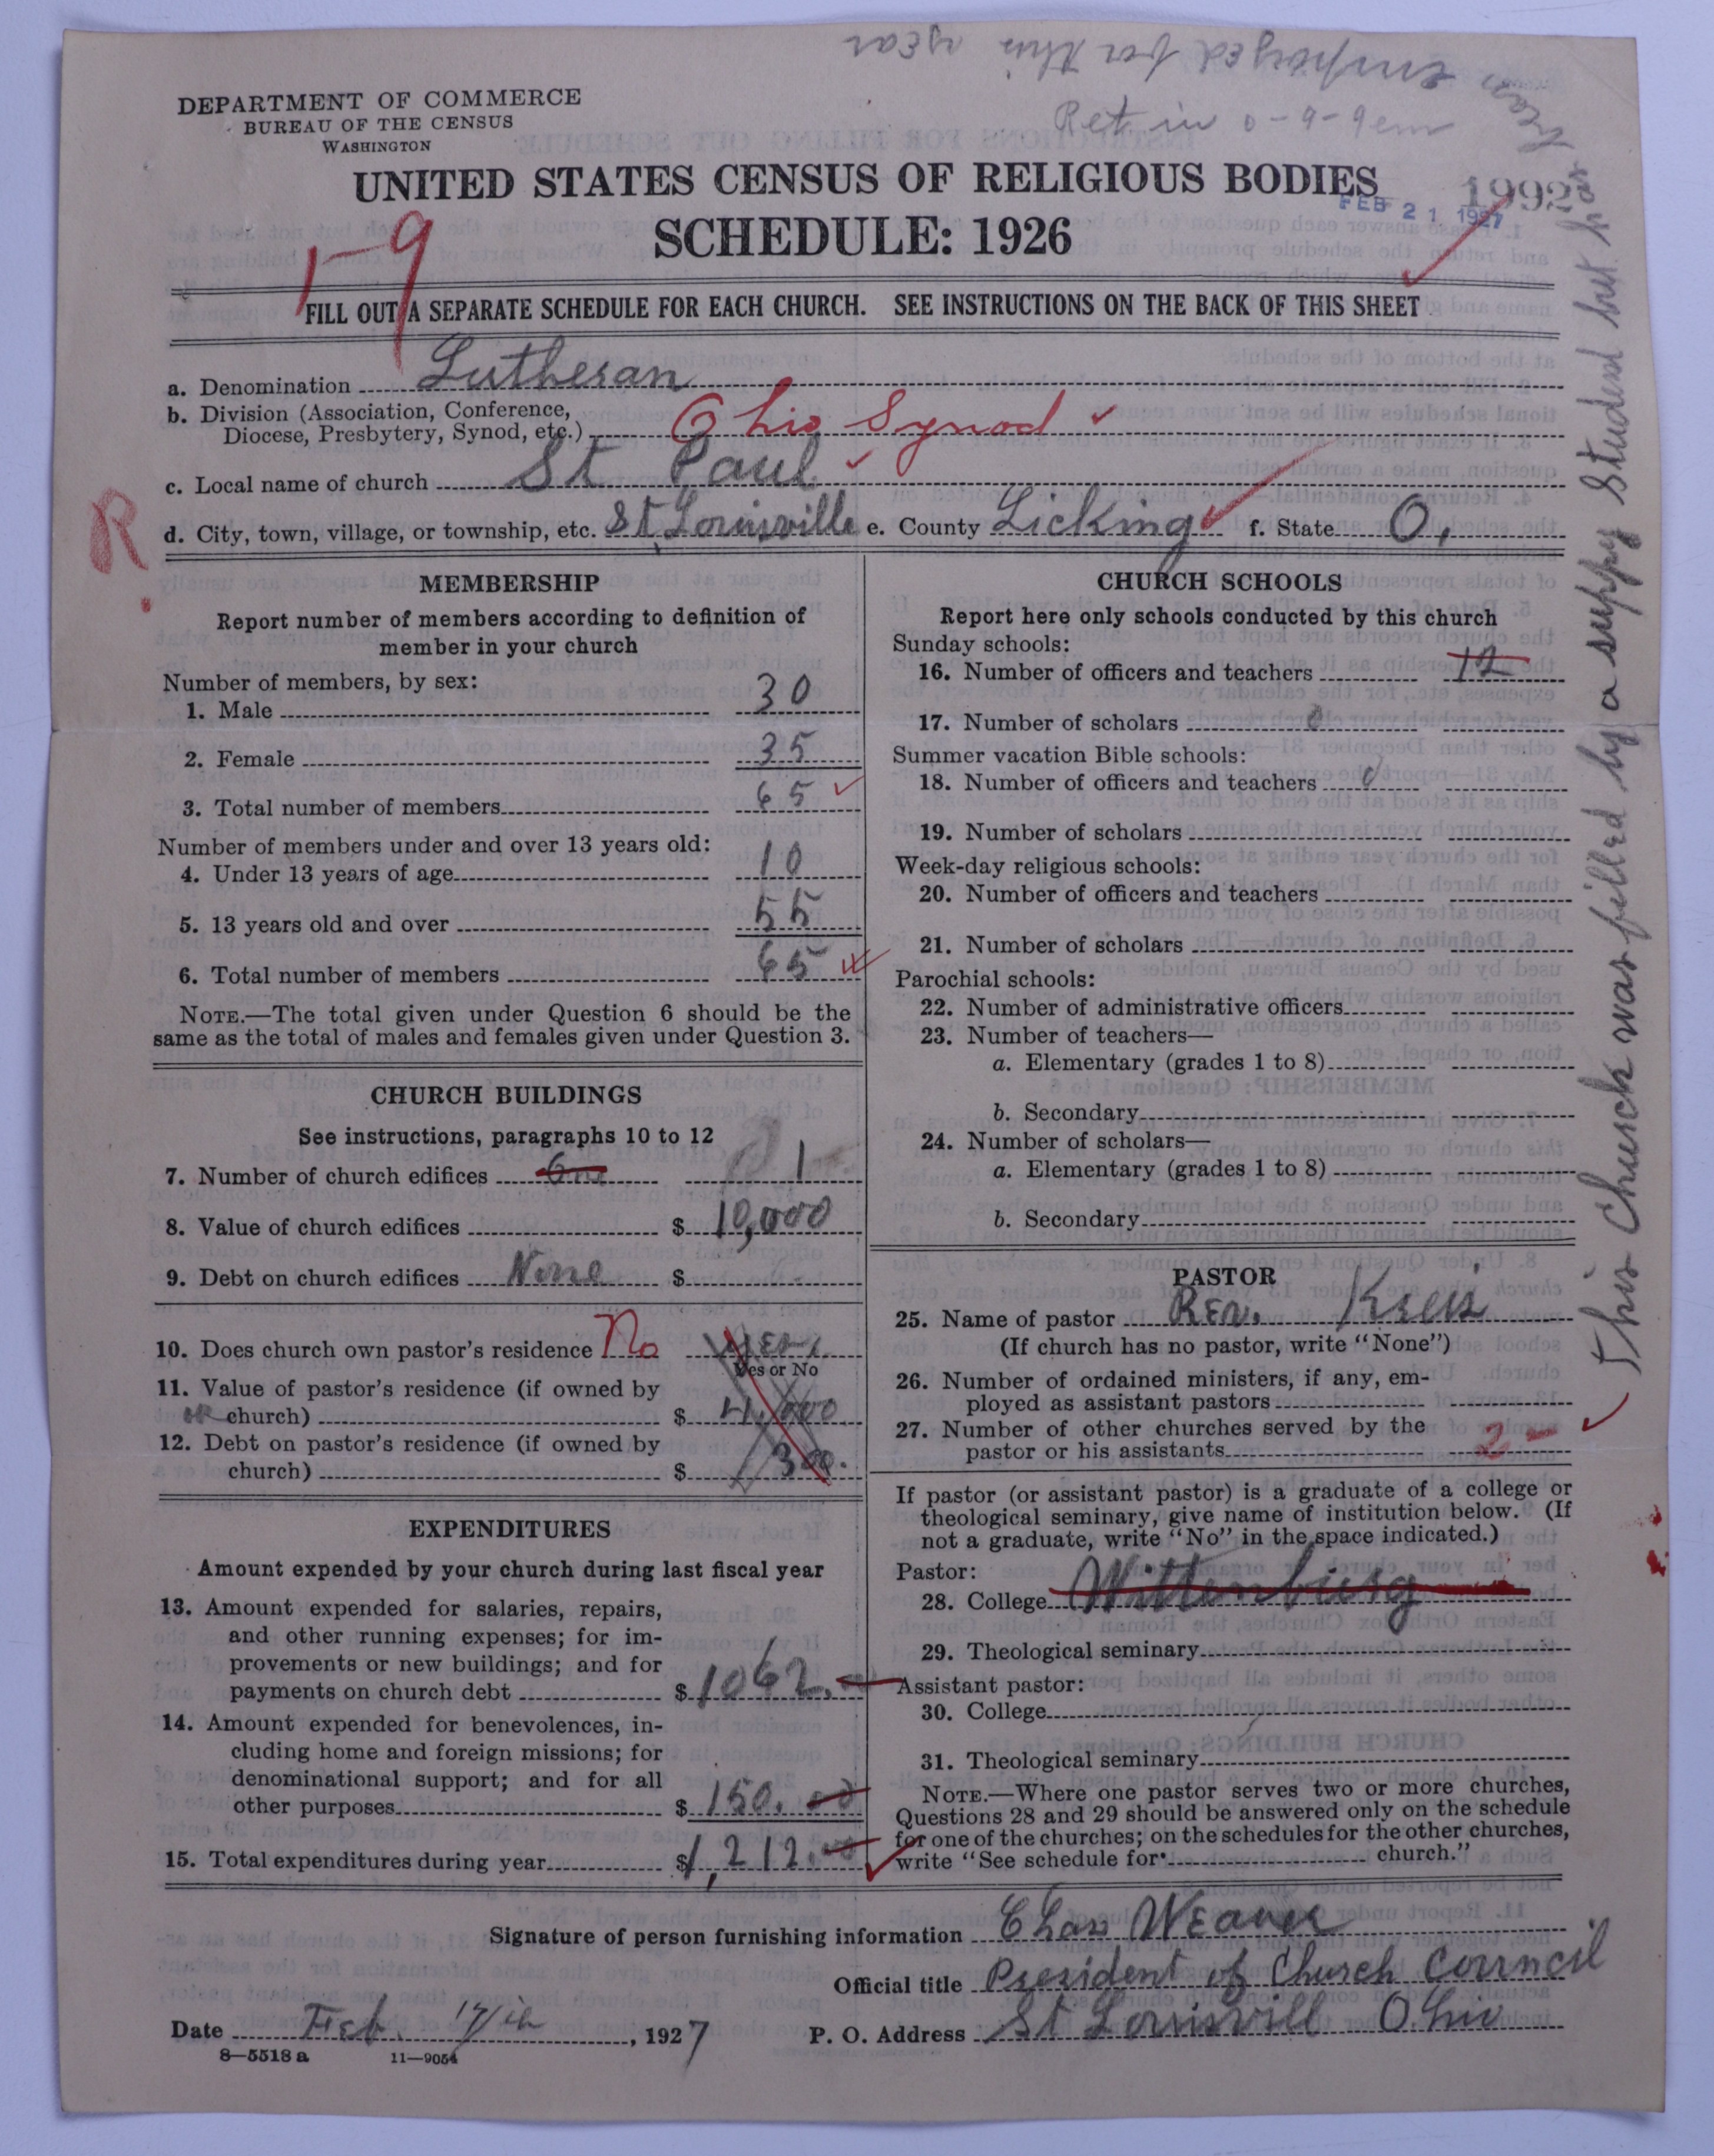 employed for this year
Ret. in 0-9-9em
DEPARTMENT OF COMMERCE
BUREAU OF THE CENSUS
WASHINGTON
UNITED STATES CENSUS OF RELIGIOUS BODIES
1992
FEB 21 1927
SCHEDULE: 1926
1-9
FILL OUT A SEPARATE SCHEDULE FOR EACH CHURCH. SEE INSTRUCTIONS ON THE BACK OF THIS SHEET
a. Denomination Lutheran
b. Division (Association, Conference,
Diocese, Presbytery, Synod, etc.) Ohio Synod
c. Local name of church St Paul
R
d. City, town, village, or township, etc. St Louisville e. County Licking f. State O.
MEMBERSHIP
Report number of members according to definition of
member in your church
Number of members, by sex:
1. Male 30
2. Female 35
3. Total number of members 65
Number of members under and over 13 years old:
4. Under 13 years of age 10
5. 13 years old and over 55
6. Total number of members 65
NOTE.—The total given under Question 6 should be the
same as the total of males and females given under Question 3.
CHURCH BUILDINGS
See instructions, paragraphs 10 to 12
7. Number of church edifices One 1
8. Value of church edifices $ 10,000
9. Debt on church edifices None $
10. Does church own pastor's residence No Yes.
Yes or No
11. Value of pastor's residence (if owned by
church) $ 4,000
12. Debt on pastor's residence (if owned by
church) $ 300.
EXPENDITURES
Amount expended by your church during last fiscal year
13. Amount expended for salaries, repairs,
and other running expenses; for im-
provements or new buildings; and for
payments on church debt $ 1062.00
14. Amount expended for benevolences, in-
cluding home and foreign missions; for
denominational support; and for all
other purposes $ 150.00
15. Total expenditures during year $ 1,212.00
CHURCH SCHOOLS
Report here only schools conducted by this church
Sunday schools:
16. Number of officers and teachers 12
17. Number of scholars 0
Summer vacation Bible schools:
18. Number of officers and teachers 0
19. Number of scholars
Week-day religious schools:
20. Number of officers and teachers
21. Number of scholars
Parochial schools:
22. Number of administrative officers
23. Number of teachers—
a. Elementary (grades 1 to 8)
b. Secondary
24. Number of scholars—
a. Elementary (grades 1 to 8)
b. Secondary
PASTOR
25. Name of pastor Rev. Kreis
(If church has no pastor, write "None")
26. Number of ordained ministers, if any, em-
ployed as assistant pastors
27. Number of other churches served by the
pastor or his assistants 2
If pastor (or assistant pastor) is a graduate of a college or
theological seminary, give name of institution below. (If
not a graduate, write "No" in the space indicated.)
Pastor:
28. College Wittenburg
29. Theological seminary
Assistant pastor:
30. College
31. Theological seminary
NOTE.—Where one pastor serves two or more churches,
Questions 28 and 29 should be answered only on the schedule
for one of the churches; on the schedules for the other churches,
write "See schedule for church."
Signature of person furnishing information Chas Weaver
Official title President of Church Council
Date Feb. 17th, 1927 P. O. Address St Louisvill Ohio
8—5518 a 11—9054
This Church was filled by a supply Student but has